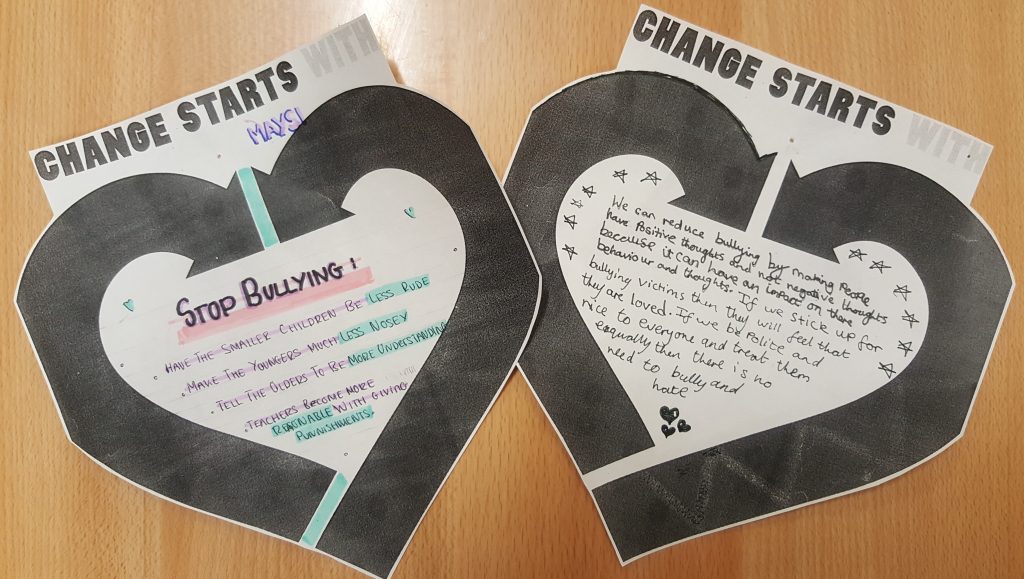 CHANGE STARTS WITH
MAYSI
STOP BULLYING!
• HAVE THE SMALLER CHILDREN BE LESS RUDE
• MAKE THE YOUNGERS MUCH LESS NOSEY
• TELL THE OLDERS TO BE MORE UNDERSTANDING
• TEACHERS BECOME MORE
RESONABLE WITH GIVING
PUNNISHMENTS.
CHANGE STARTS WITH
We can reduce bullying by making People
have Positive thoughts and not negative thoughts
because it can have an impact on there
behaviour and thoughts. If we stick up for
bullying victims then they will feel that
they are loved. If we be Polite and
nice to everyone and treat them
equally then there is no
need to bully and
hate